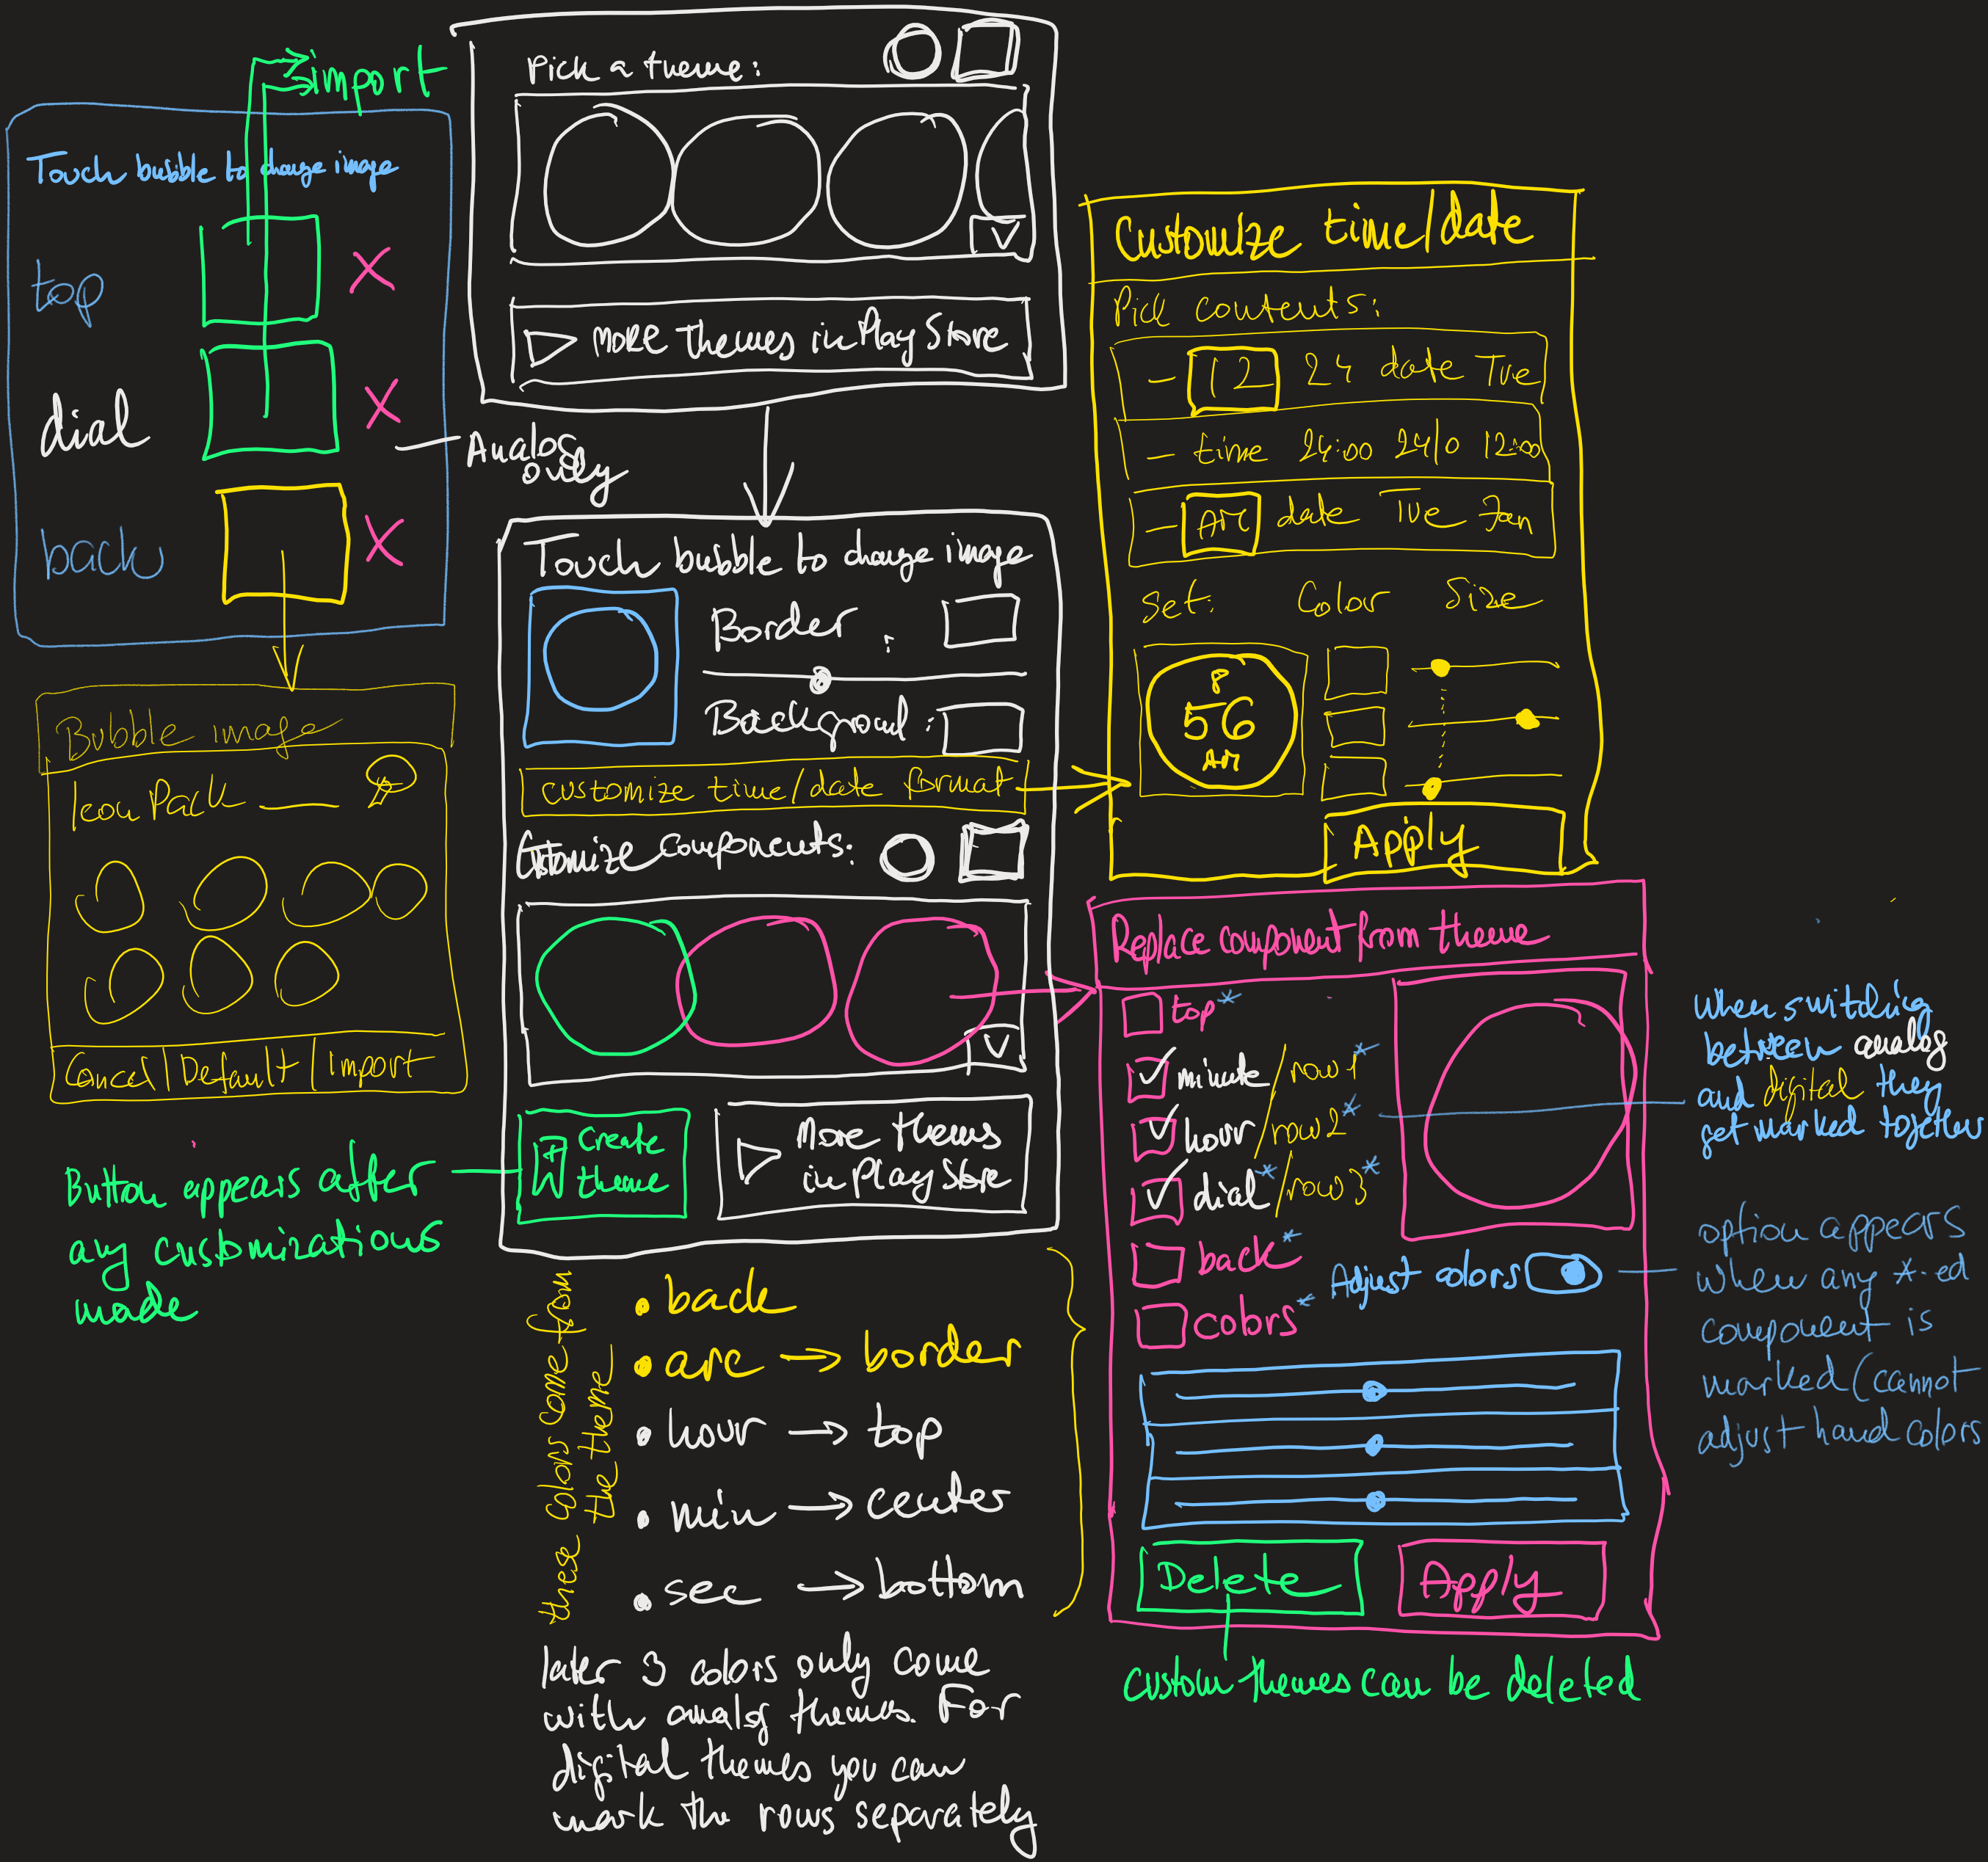 import
Touch bubble to change image
top
dial
Analog
only
back
Pick a theme:
More themes in Play Store
Touch bubble to change image
Border :
Backgroud :
customize time/date format
Customize components:
Create
theme
More thems
in Play Store
Button appears after
any customizations
made
Bubble image
Icon Pack
Cancel | Default | Import
Customize time/date
Pick contents:
- 12 24 date Tue
- time 24:00 24/0 12:00
- AM date Tue Jan
Set: Colour Size
8
56
AM
Apply
Replace component from theme
top*
minute /row1*
hour /row2*
dial* /row3*
back*
colors*
Adjust colors
Delete
Apply
custom themes can be deleted
When switching
between analog
and digital they
get marked together
option appears
when any *-ed
component is
marked (cannot
adjust hand colors
these colors come from
the theme
• back
• arc → border
• hour → top
• min → center
• sec → bottom
later 3 colors only come
with analog themes. For
digital themes you can
mark the rows separately